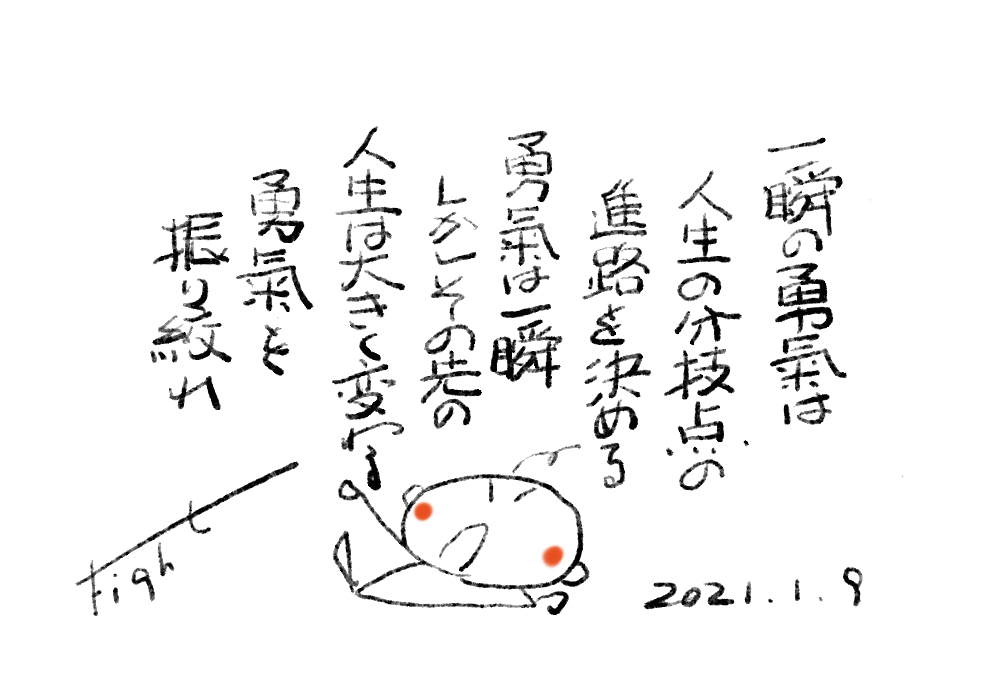 一瞬の勇氣は
人生の分技点の
進路を決める
勇氣は一瞬
しかしその先の
人生は大きく変わる
勇氣を
振り絞れ
Fight
2021.1.9